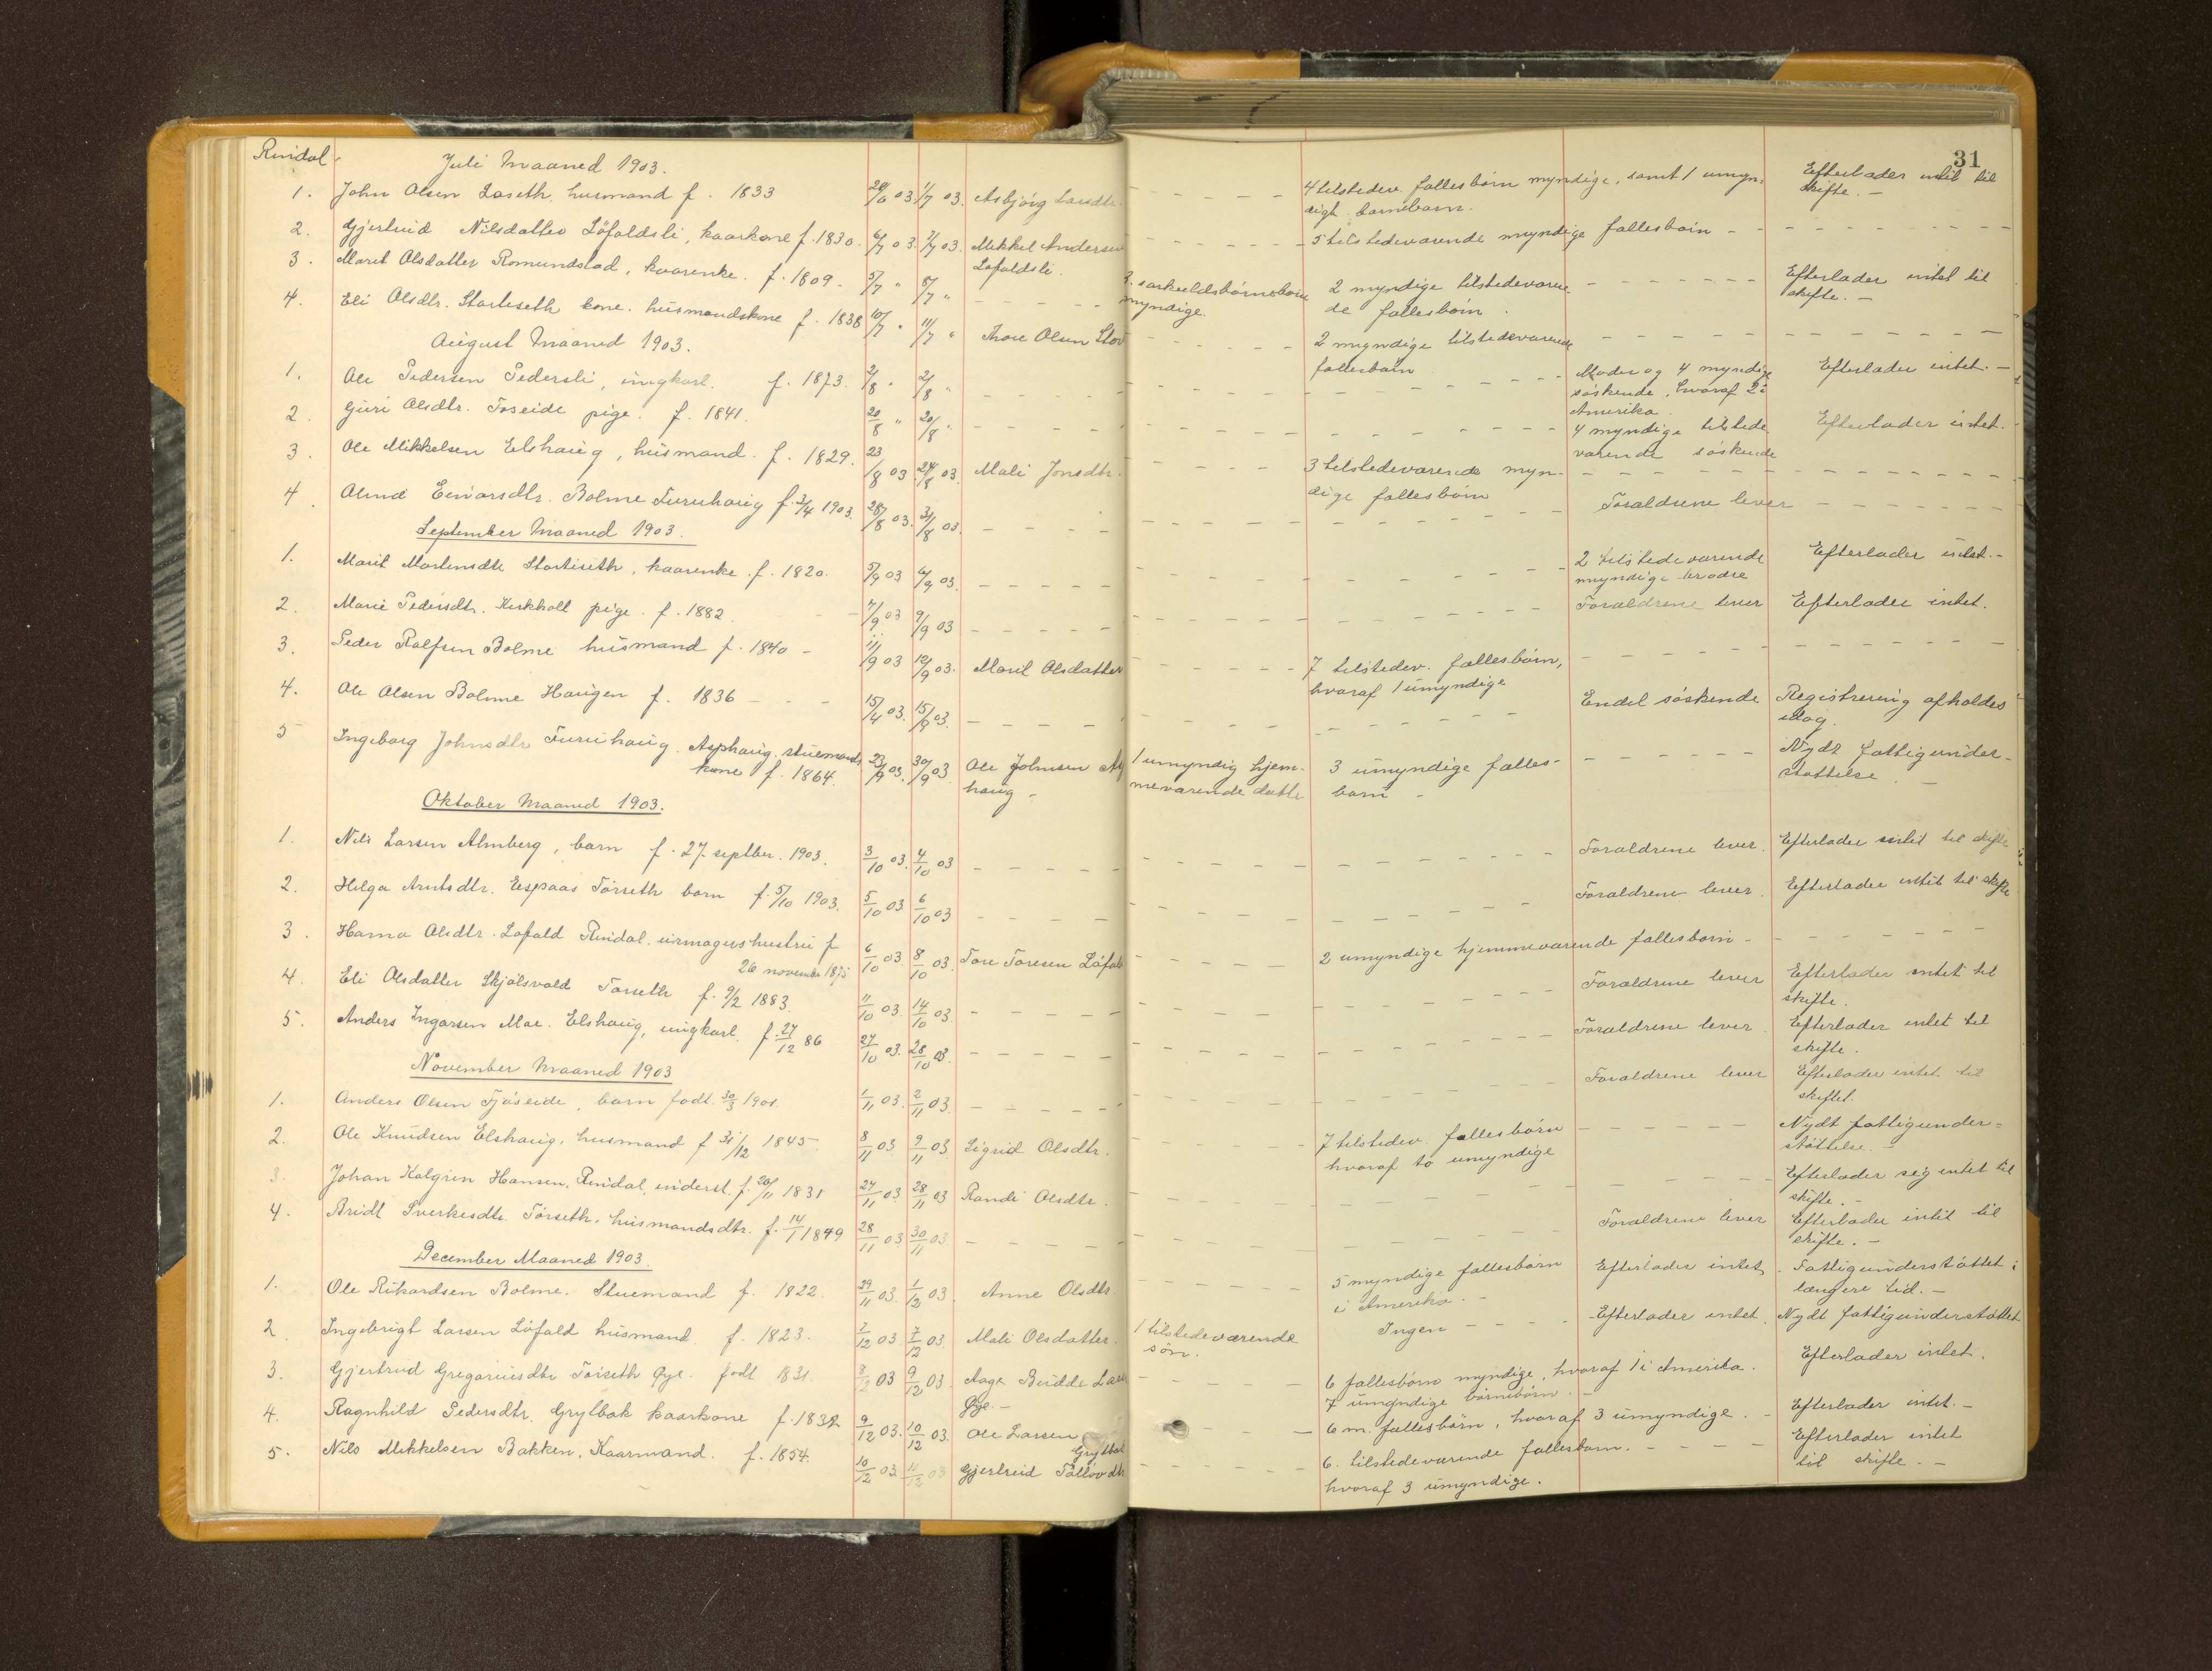 31
Rindal
Juli Maaned 1903.
1. John Olsen Laseth. husmand f. 1833 28/6 03 1/7 03. Asbjörg Larsdtr. 4 tilstedev. fallesbörn myndige, samt 1 umyn- Efterlader intet til
digt barnebarn. skifte. -
2. Gjertrud Nilsdatter Löfaldsli, kaarkone f. 1830. 6/7 03. 7/7 03. Mikkel Andersen 5 tilstedevarende myndige fallesbörn
Lofaldsli.
3. Marit Olsdatter Romundstad, kaarenke. f. 1809. 5/7 " 8/7 " myndige. 2 myndige tilstedevaren- Efterlader intet til
de fallesbörn. skifte. -
4. Eli Olsdtr. Storliseth kone. husmandskone f. 1838 10/7 " 11/7 " Thore Olsen Stor 2 myndige tilstedevarende
fallesbörn
August Maaned 1903.
1. Ole Pedersen Pedersli, ungkarl. f. 1873. 2/8 " 2/8 " Moder og 4 myndige Efterlader intet. -
söskende, hvoraf 2 i
Amerika.
2. Guri Olsdtr. Foseide pige. f. 1841. 20/8 " 20/8 " 4 myndige tilstede Efterlader intet.
varende söskende
3. Ole Mikkelsen Elshaug, husmand. f. 1829. 23/8 03 24/8 03. Mali Jonsdtr. 3 tilstedevarende myn-
dige fallesbörn
4. Einarsdtr. Bolme Furuhaug f. 3/4 1903. 28/8 03. 31/8 03. Foraldrene lever
September Maaned 1903.
1. Marit Martinsdtr Storliseth, kaarenke. f. 1820. 5/9 03 6/9 03. 2 tilstedevarende Efterlader intet. -
myndige brodre
2. Marie Pedersdtr. Kirkholt pige. f. 1882 7/9 03 9/9 03 Foraldrene lever Efterlader intet.
3. Peder Rolfsen Bolme husmand f. 1840 - 11/9 03 12/9 03. Marit Olsdatter 7 tilstedev. fallesbörn,
hvoraf 1 umyndige
4. Ole Olsen Bolme Haugen f. 1836 15/4 03. 15/9 03. Endel söskende Registrering afholdes
idag.
5 Ingeborg Johnsdtr Furuhaug. Asphaug. stuemands 23/9 03. 30/9 03. Ole Johnsen As 1 umyndig hjem- 3 umyndige falles- Nydt fattigunder-
kone f. 1864. haug - mevarende datte barn - stottelse -
Oktober Maaned 1903.
1. Nils Larsen Almberg, barn f. 27. septber. 1903. 3/10 03. 4/10 03 Foraldrene lever. Efterlader intet til skifte
2. Helga Arntsdtr. Espaas Törseth barn f. 5/10 1903. 5/10 03. 6/10 03 Foraldrene lever. Efterlader intet til skifte
3. Hanna Olsdtr. Lofald Rindal. urmagershustru f 6/10 03. 8/10 03. Tore Toresen Löfald 2 umyndige hjemmevarende fallesborn -
26 november 1875
4. Eli Olsdatter Skjölsvold Torseth f. 9/2 1883. 11/10 03. 14/10 03. Foraldrene lever Efterlader intet til
skifte.
5. Anders Ingarsen Moe. Elshaug, ungkarl. f. 27/12 86 27/10 03. 28/10 03. Foraldrene lever. Efterlader intet til
skifte.
November Maaned 1903
1. Anders Olsen Fjöseide, barn fodt. 30/3 1901. 1/11 03. 2/11 03. Foraldrene lever Efterlader intet til
skiftet.
2. Ole Knudsen Elshaug, husmand f 31/12 1845. 8/11 03 9/11 03. Sigrid Olsdtr. 7 tilstedev. fallesbörn Nydt fattigunder=
hvoraf to umyndige stöttelse. -
3. Johan Kalgrin Hansen, Rindal, inderst. f. 20/11 1831 27/11 03 28/11 03 Randi Olsdtr. Efterlader sig intet til
skifte. -
4. Bridt Sverkesdtr. Törseth. husmandsdtr. f. 14/1 1849 28/11 03 30/11 03. Foraldrene lever Efterlader intit til
skifte. -
December Maaned 1903.
1. Ole Rikardsen Bolme. Stuemand f. 1822. 29/11 03. 1/12 03. Anne Olsdtr. 5 myndige fallesbörn Efterlader intet. Fattigunderstöttet i
i Amerika. - længere tid. -
2. Ingebrigt Larsen Löfald husmand. f. 1823. 2/12 03 7/12 03. Mali Olsdatter. 1 tilstedeværende Ingen Efterlader intet. Nydt fattigunderstöttet
sön.
3. Gjertrud Gregoriusdtr Törseth Øye. fodt 1831. 8/12 03 9/12 03. Aage Bridde Lars 6 fallesbörn myndige, hvoraf 1 i Amerika. Efterlader intet.
Øye. - 7 umyndige börnebörn. -
4. Ragnhild Pedersdtr. Grylbak kaarkone f. 1832 9/12 03. 10/12 03. Ole Larsen 6 m. fallesbörn, hvoraf 3 umyndige. - Efterlader intet. -
Grylbak
5. Nils Mikkelsen Bakken, Kaarmand. f. 1854. 10/12 03. 11/12 03 Gjertrud Tøllövdtr 6. tilstedevarende fallesbarn. Efterlader intet
hvoraf 3 umyndige. til skifte. -